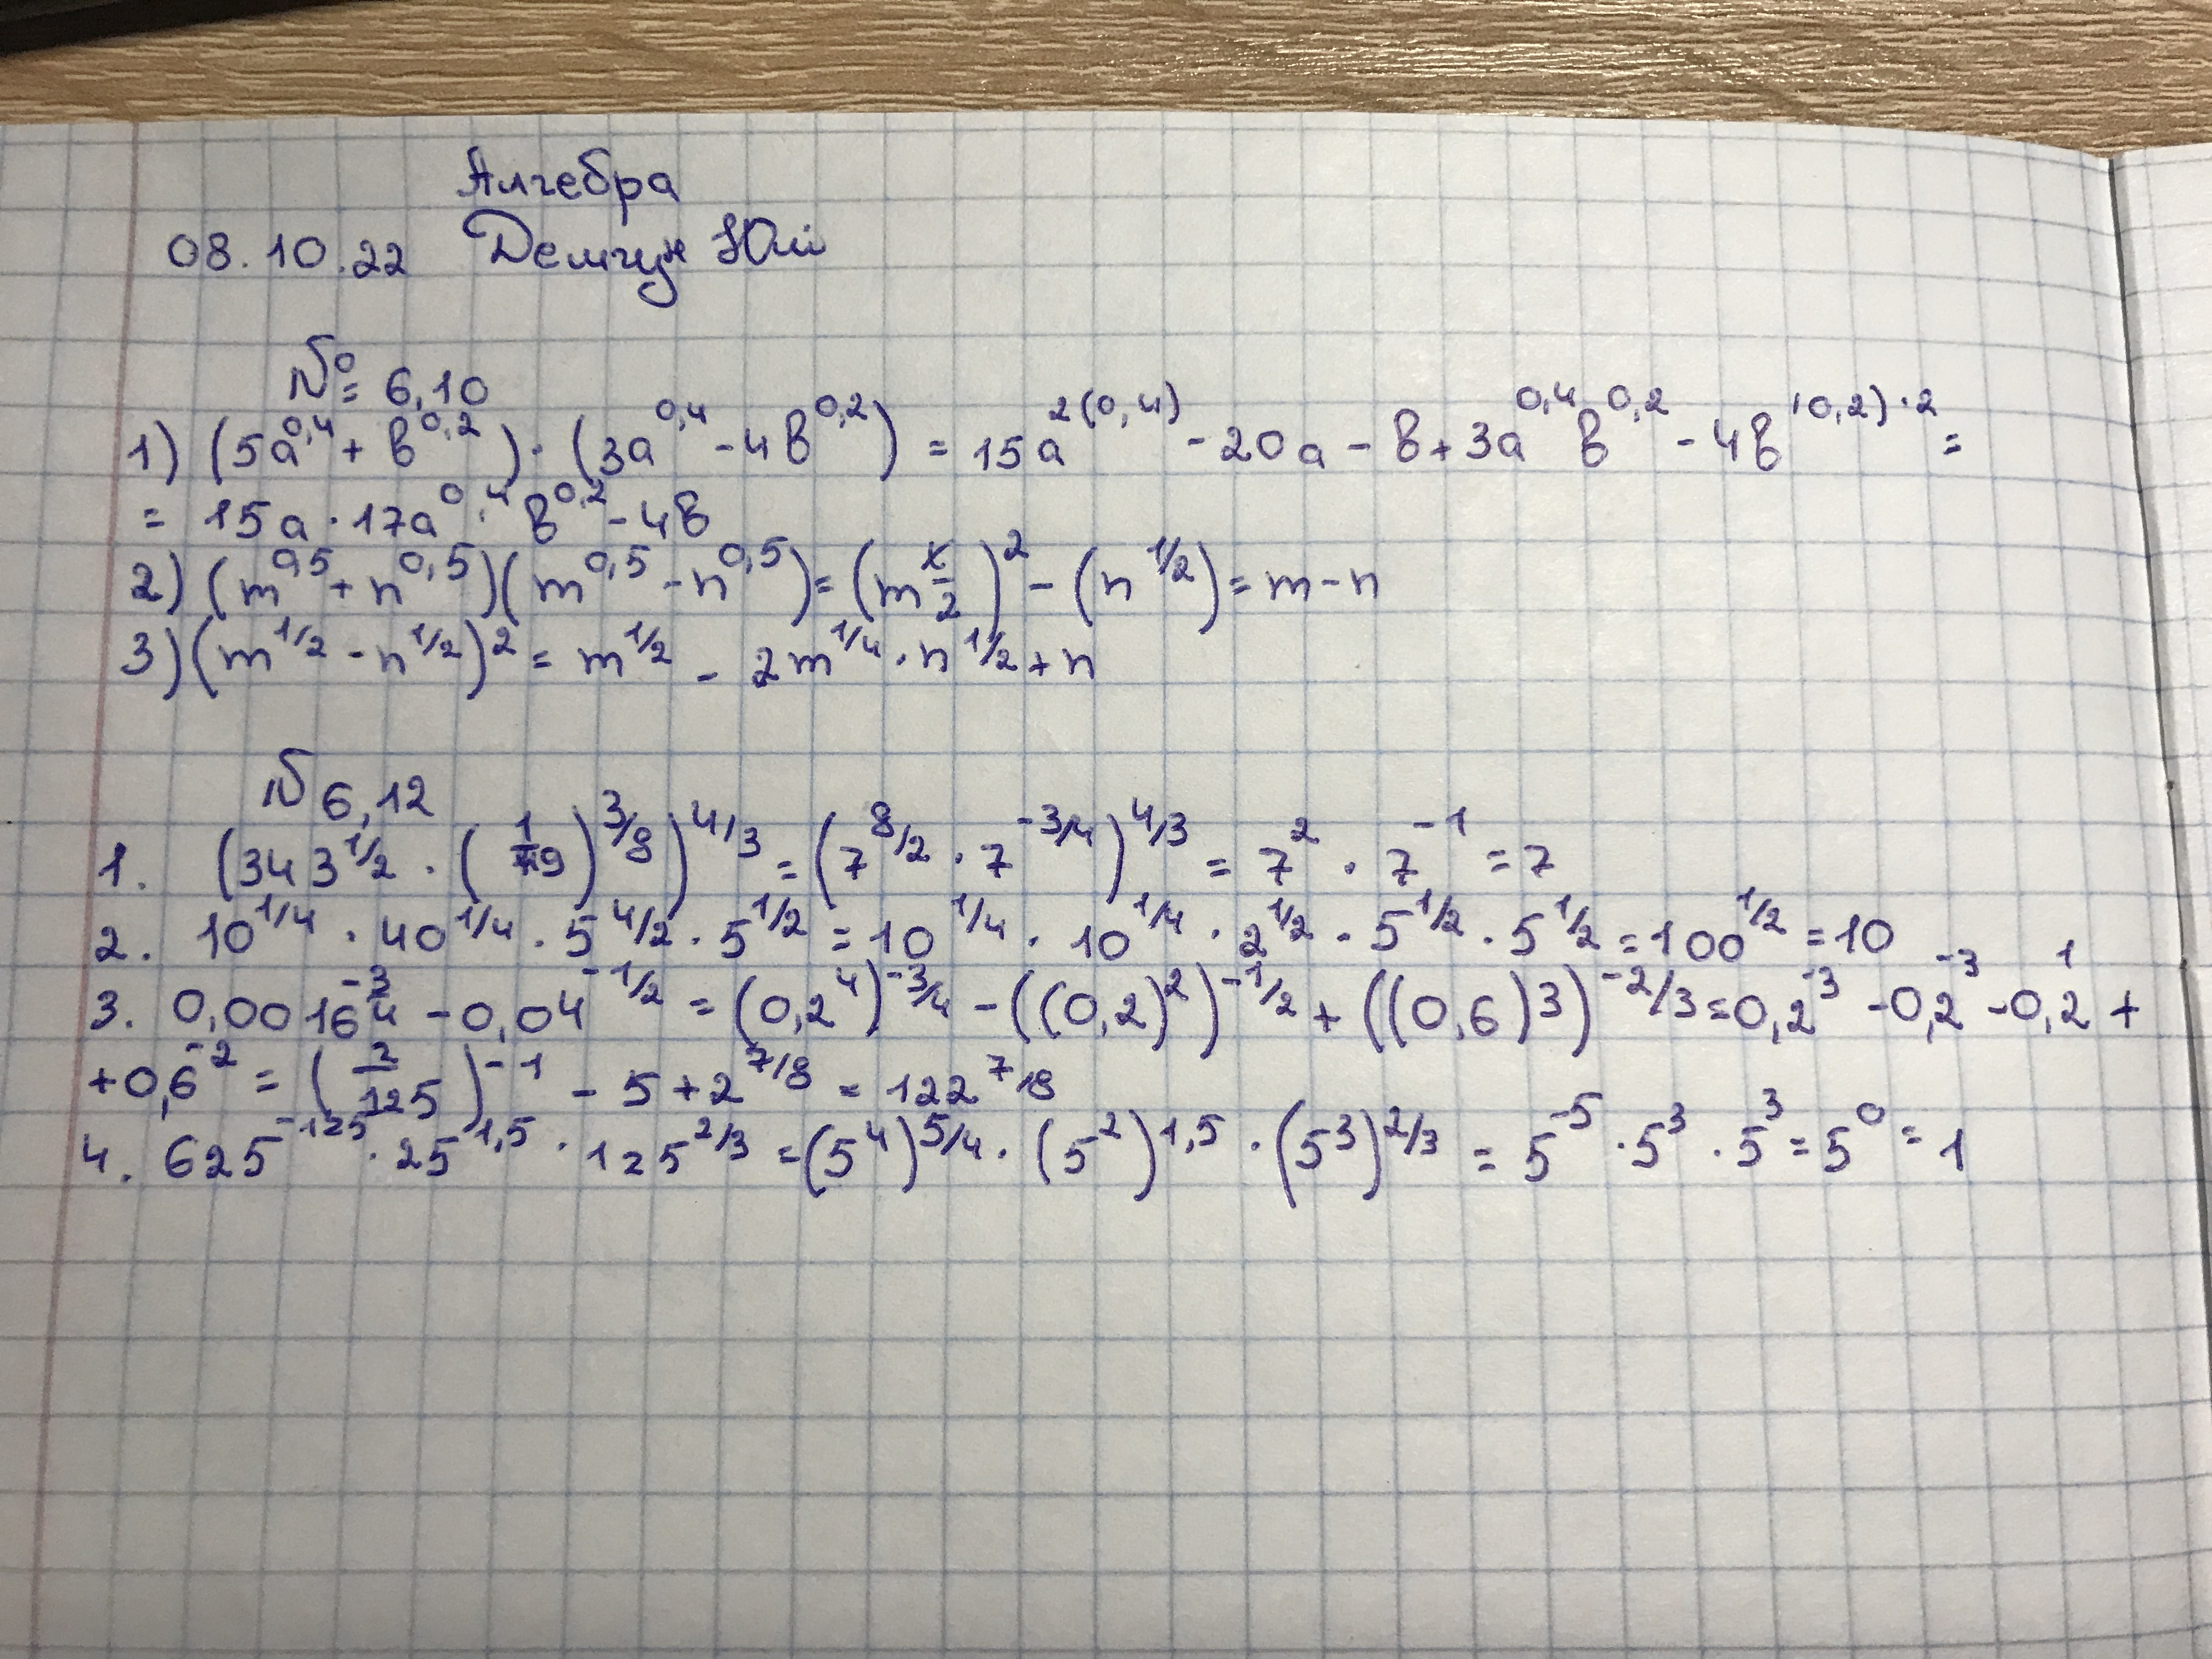 Алгебра
08.10.22 Демчук Юлі
№ 6,10
1) (5a^0,4 + b^0,2) · (3a^0,4 - 4b^0,2) = 15a^2(0,4) - 20a - b + 3a^0,4 b^0,2 - 4b^(0,2)·2 =
= 15a · 17a^0,4 b^0,2 - 4b
2) (m^0,5 + n^0,5)(m^0,5 - n^0,5) = (m^1/2)^2 - (n^1/2) = m - n
3) (m^1/2 - n^1/2)^2 = m^1/2 - 2m^1/4 · n^1/2 + n
№ 6,12
1. (343^1/2 · (1/49)^3/8)^4/3 = (7^8/2 · 7^-3/4)^4/3 = 7^2 · 7^-1 = 7
2. 10^1/4 · 40^1/4 · 5^4/2 · 5^1/2 = 10^1/4 · 10^1/4 · 2^1/2 · 5^1/2 · 5^1/2 = 100^1/2 = 10
3. 0,0016^-3/4 - 0,04^-1/2 = (0,2^4)^-3/4 - ((0,2)^2)^-1/2 + ((0,6)3)^-2/3 = 0,2^-3 - 0,2^-3 - 0,2^1 +
+ 0,6^-2 = (2/125)^-1 - 5 + 2^7/8 = 122^7/8
4. 625^-125 · 25^1,5 · 125^2/3 = (5^4)^5/4 · (5^2)^1,5 · (5^3)^2/3 = 5^-5 · 5^3 · 5^3 = 5^0 = 1